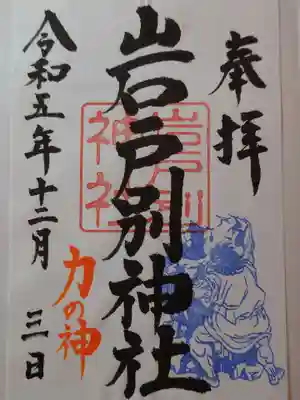 奉拝
山岩戸別神社
岩戸別
神社
力の神
令和五年十二月
三日